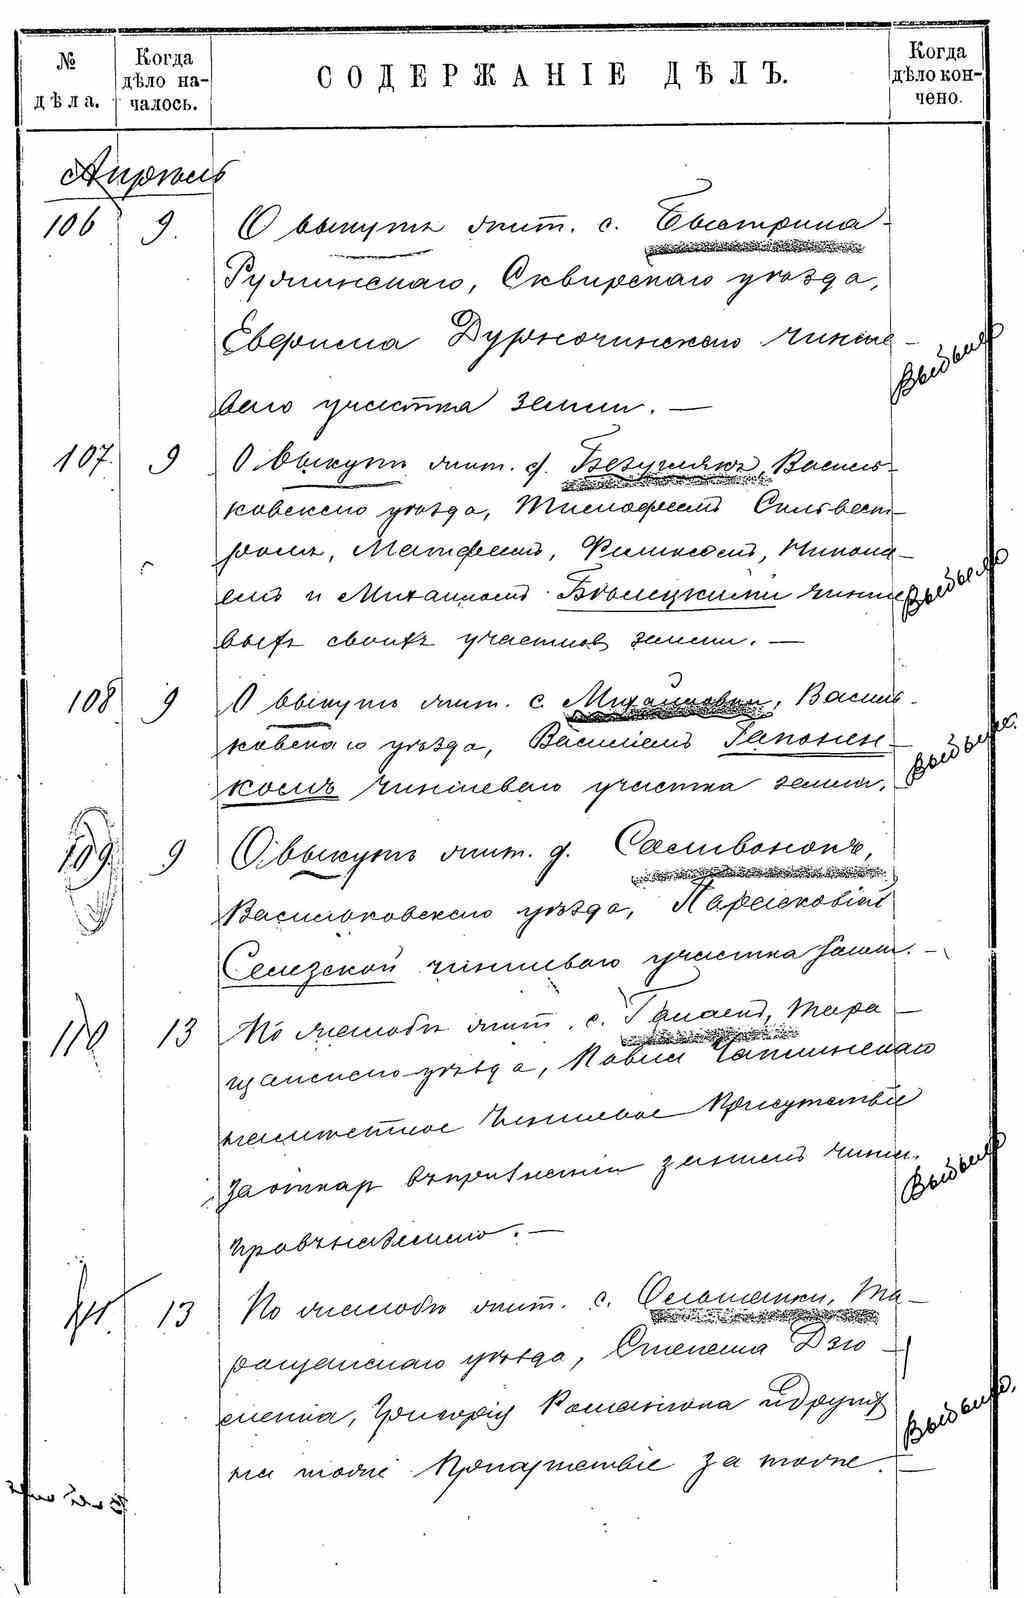 № дѣла.
Когда дѣло на-чалось.
СОДЕРЖАНІЕ ДѢЛЪ.
Когда дѣло кон-чено.
Апрѣль
106 9. О выкупѣ жит. с. Быстрика
Ружинскаго, Сквирскаго уѣзда,
чинше-
ваго участка земли. —
Выбыло
107. 9 О выкупѣ жит. д. Безуглякъ, Василь-
ковскаго уѣзда, Тимофеемъ Сильвест-
ромъ, Матфеемъ, Филиппомъ, Никола-
емъ и Михаиломъ Бѣлецкими чинше-
выхъ своихъ участковъ земли. —
Выбыло
108 9 О выкупѣ жит. с. Михайловки, Василь-
ковскаго уѣзда, Василіемъ Гапонен-
комъ чиншеваго участка земли.
Выбыло.
109 9 О выкупѣ жит. д. Саливонокъ,
Васильковскаго уѣзда, Парасковіей
чиншеваго участка земли. —
110 13 По жалобѣ жит. с. Тара-
щанскаго уѣзда, Павла
на мѣстное Чиншевое Присутствіе
за отказ въ признаніи за нимъ чинш.
права на землю. —
Выбыло
111. 13 По жалобѣ жит. с. Ольшанки, Та-
ращанскаго уѣзда, Степана Дзю-
Григорія Романюка и других
на тоже Присутствіе за тоже. —
Выбыло.